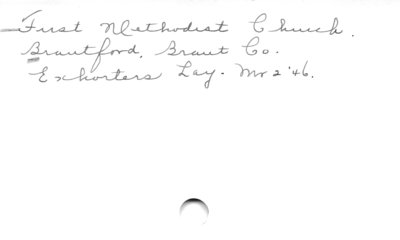 First Methodist Church.
Brantford, Brant Co.
Exhorters Lay. Mr 2 '46.